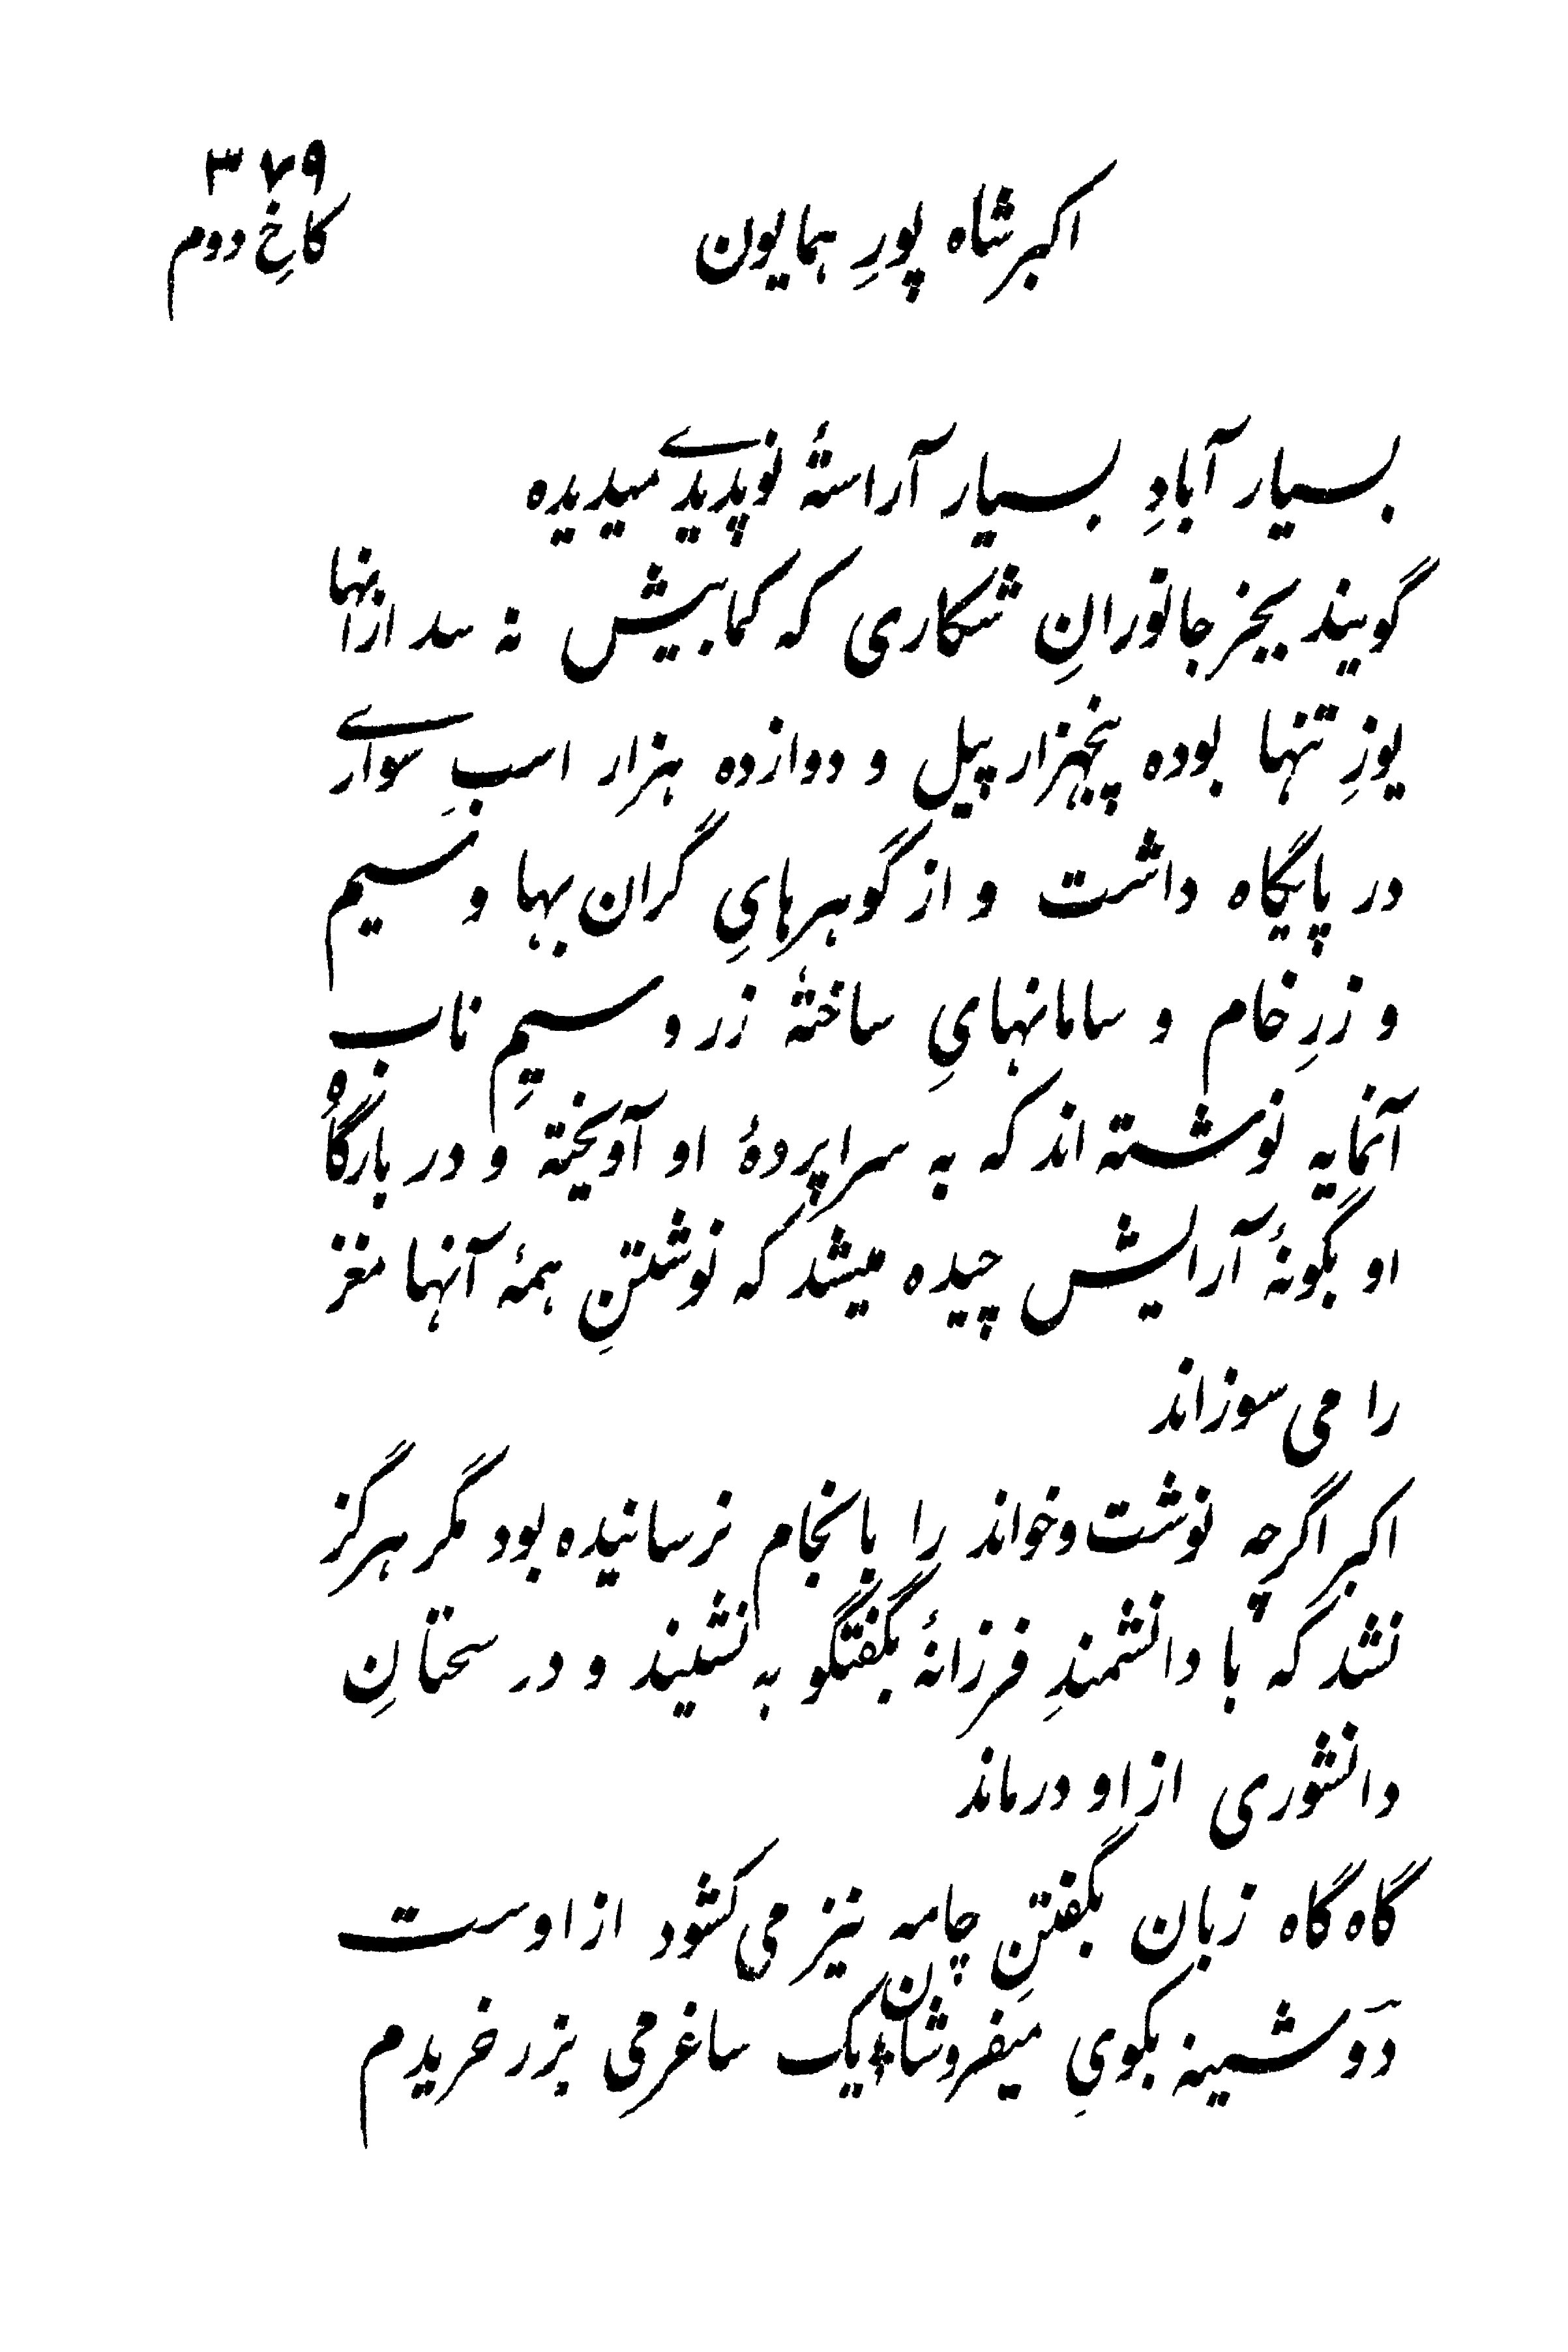 ۳۷۹
کاخِ دوم
اکبرشاه پورِ همایون
بسیار آبادِ بسیار آراستهٔ نوپدیدے میدیده
گویند بجز جانورانِ شکاری که کمابیش نه سد ازانها
یوزِ تنها بوده پنجهزار پیل و دوازده هزار اسبِ سوارے
در پایگاه داشت و از گوهرهایِ گران بها و سیم
و زرِ خام و سامانهایِ ساختهٔ زر و سیمِ ناب
آنمایه نوشته اند که به سراپردهٔ او آویخته و در بارگاهِ
او بگونهٔ آرایش چیده میشد که نوشتنِ همهٔ آنها مغز
را می سوزاند
اکبر اگرچه نوشت وخواند را بانجام نرسانیده بود مگر هرگز
نشد که با دانشمندِ فرزانهٔ بگفتگو به نشیند و در سخنانِ
دانشوری از او درماند
گاه گاه زبان بگفتنِ چامه نیز می کشود از اوست
دوشینه بکویِ میفروشان * یک ساغرِ می بزر خریدم